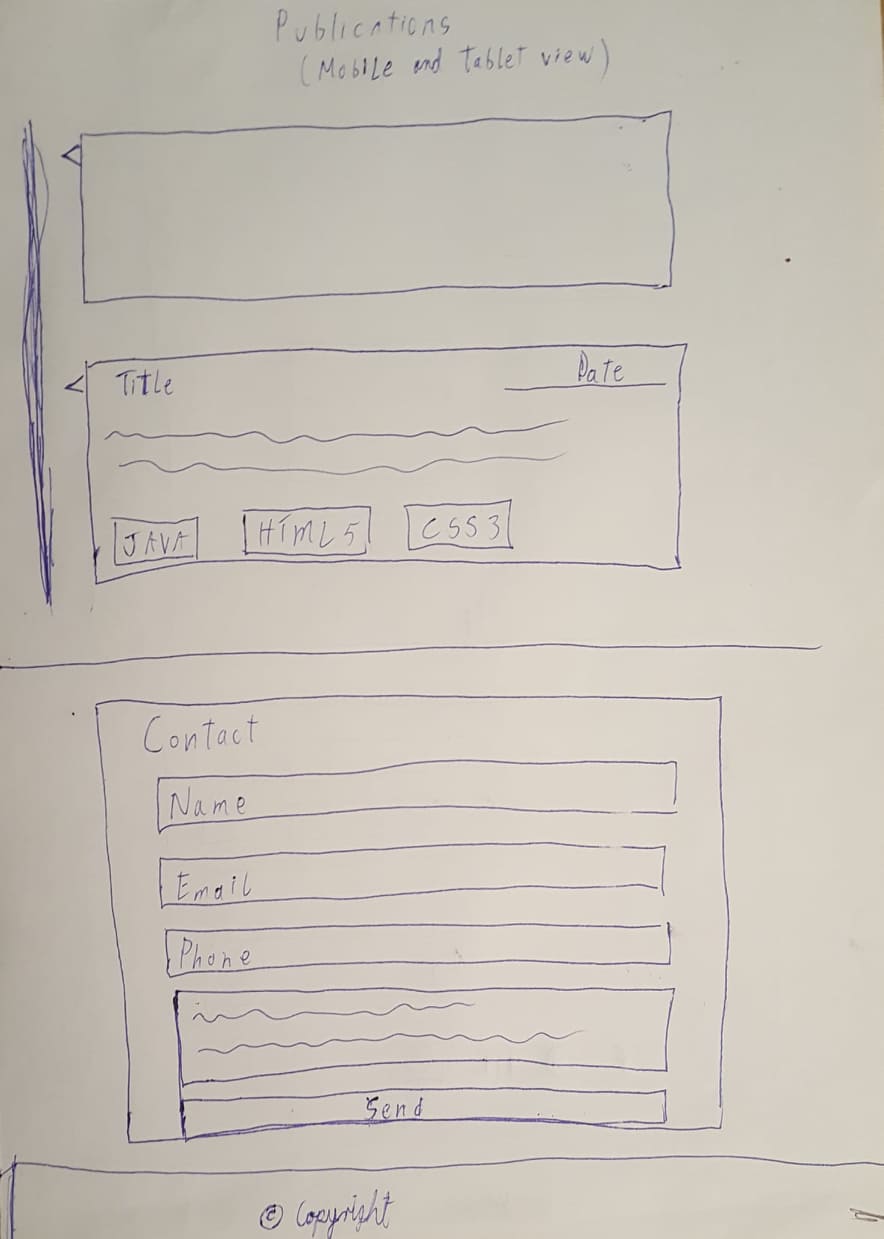 Publications
(Mobile and Tablet view)
Title Date
JAVA HTML5 CSS3
Contact
Name
Email
Phone
Send
© Copyright